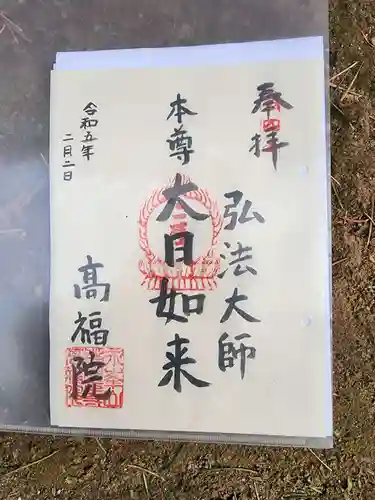 奉拝
弘法大師
本尊
大日如来
令和五年
二月二日
高福院